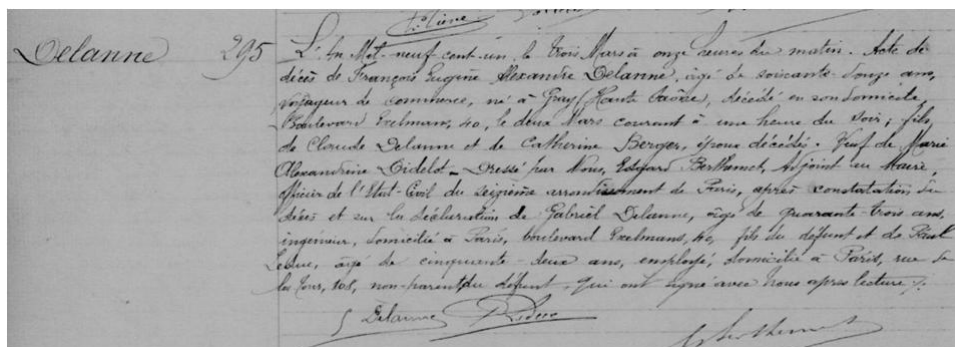 Delanne 295
L'An Mil-neuf-cent-un, le trois Mars à onze heures du matin. Acte de
décès de François Eugène Alexandre Delanne, âgé de soixante-douze ans,
voyageur de commerce, né à Gray (Haute Saône), décédé en son domicile
boulevard Exelmans, 40, le deux Mars courant à une heure du soir; fils
de Claude Delanne et de Catherine Berger, époux décédés. Veuf de Marie
Alexandrine Didelot. Dressé par Nous, Edgard Berthemet, Adjoint au Maire,
officier de l'Etat-Civil du seizième arrondissement de Paris, après constatation du
décès et sur la déclaration de Gabriel Delanne, âgé de quarante-trois ans,
ingénieur, domicilié à Paris, boulevard Exelmans, 40, fils du défunt et de Paul
Leduc, âgé de cinquante-deux ans, employé, domicilié à Paris, rue de
la Tour, 108, non-parent du défunt, qui ont signé avec Nous après lecture.
G Delanne PLeduc